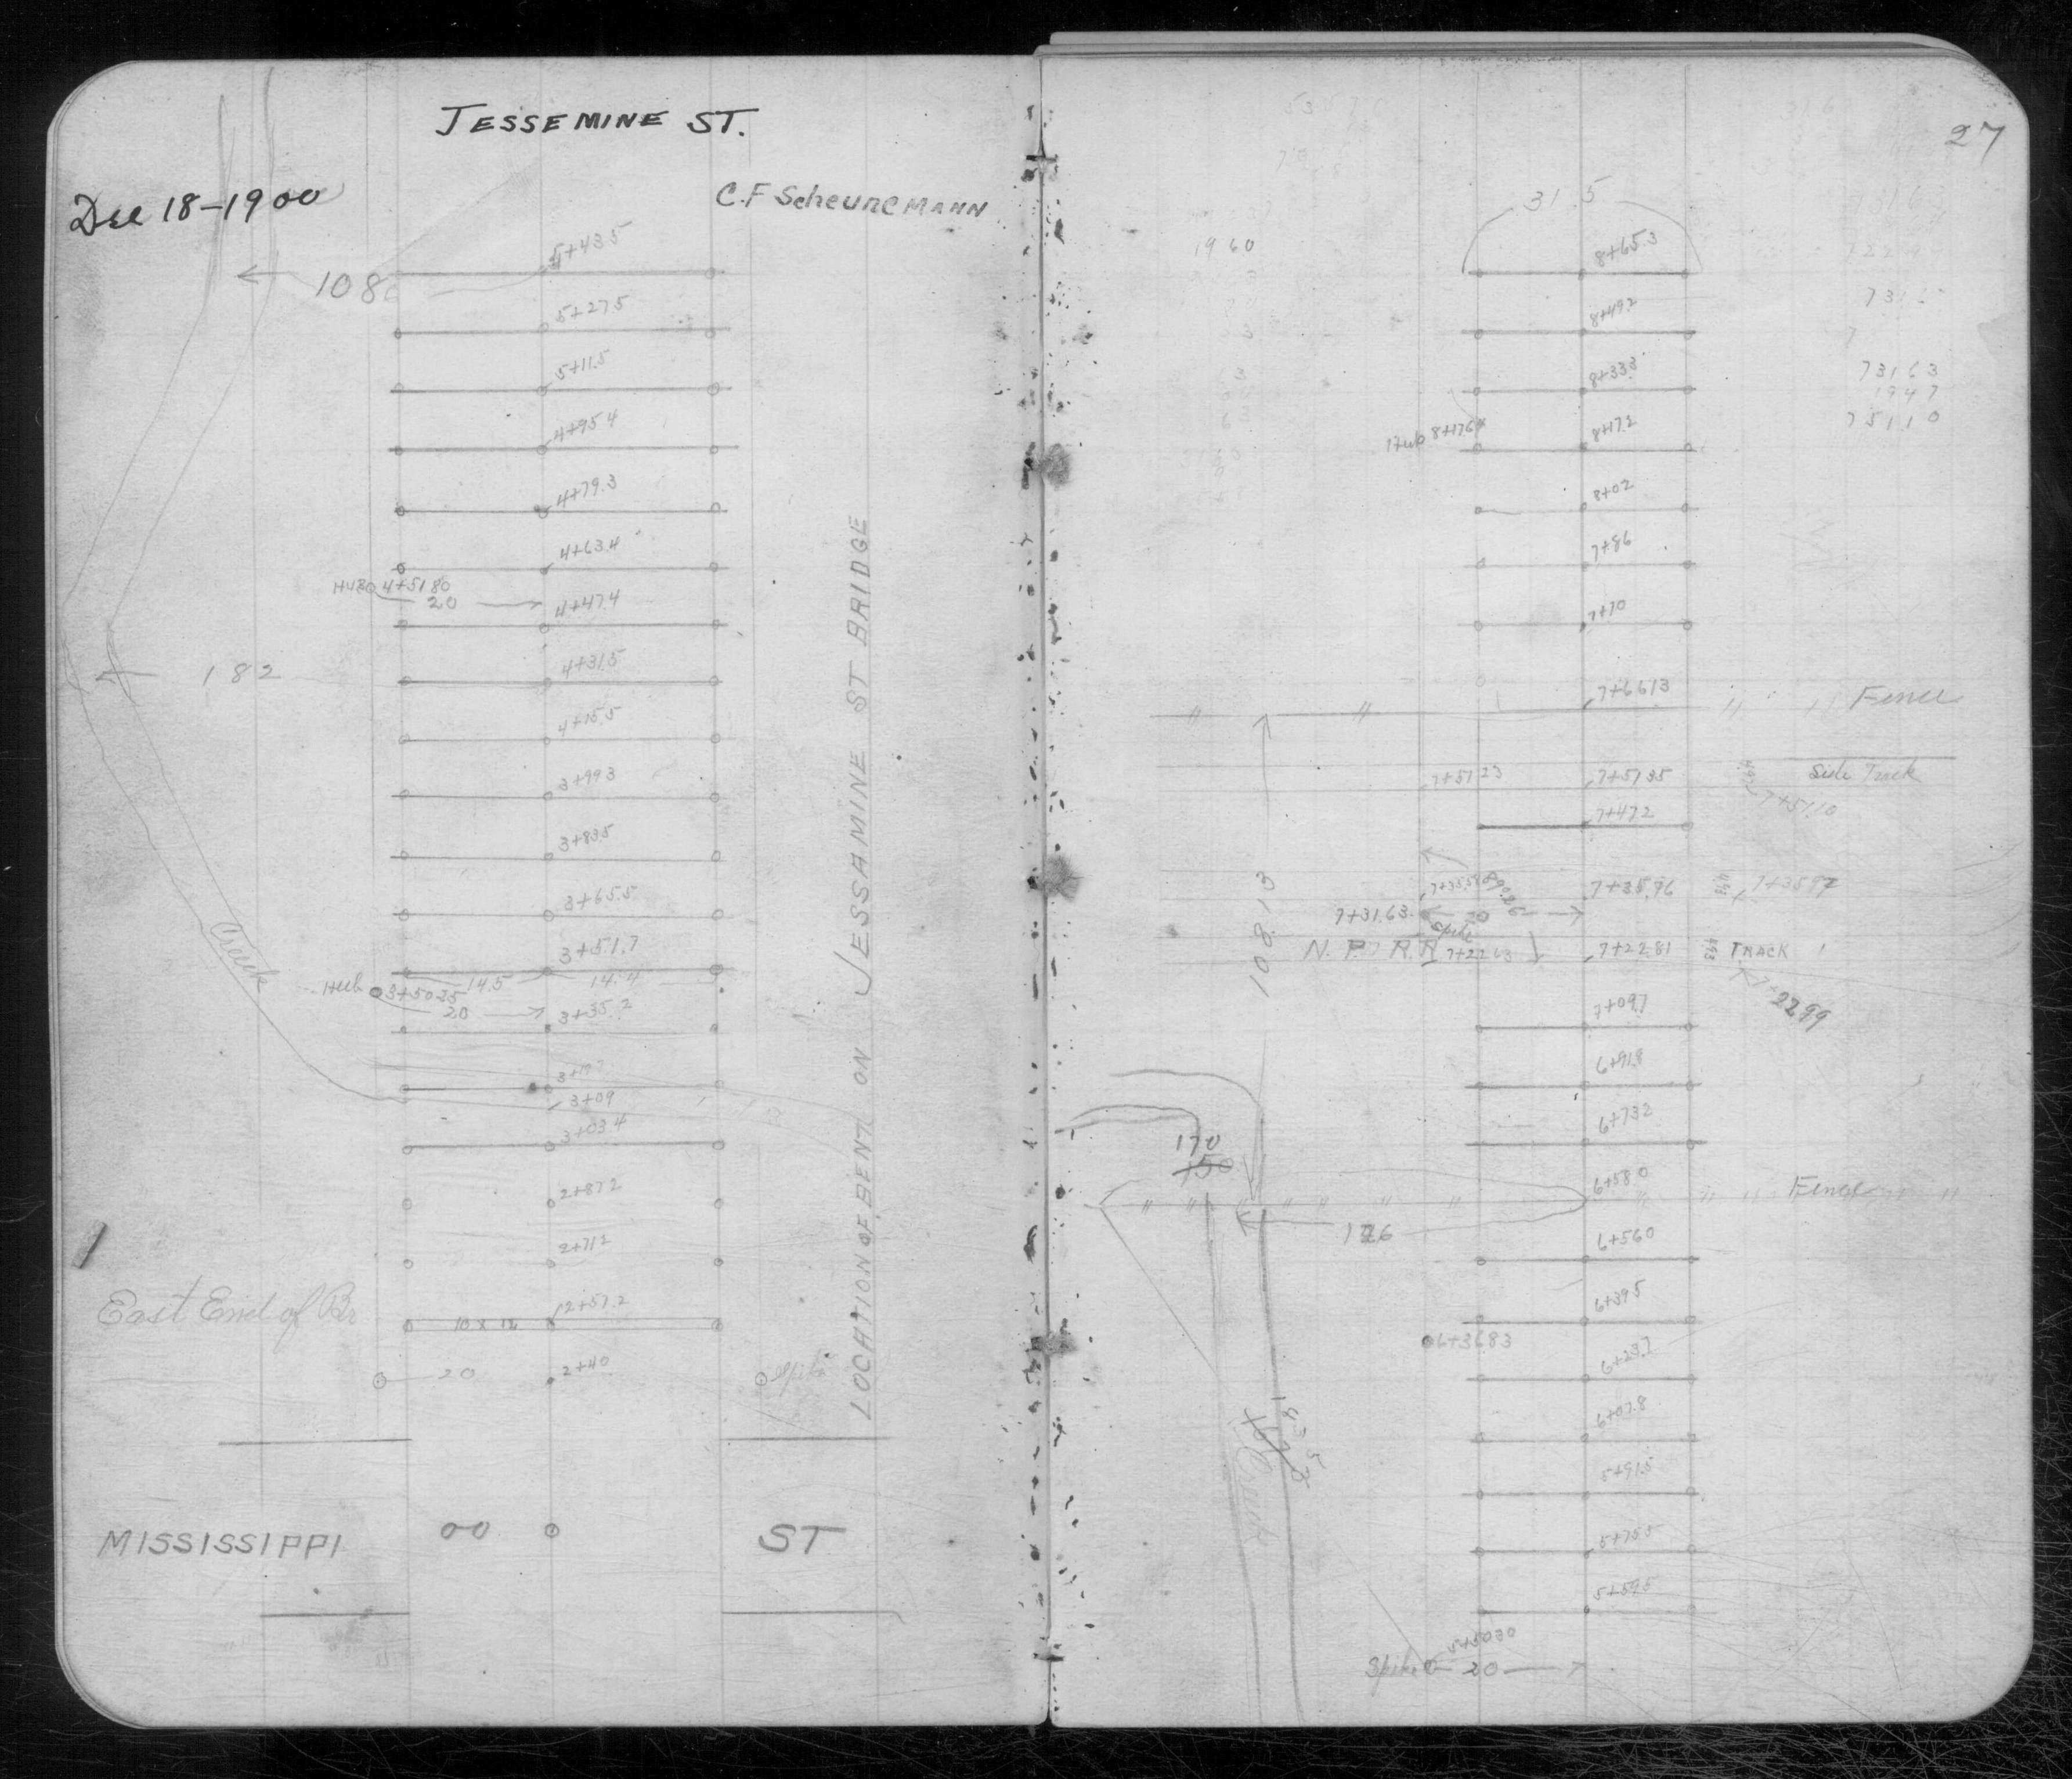 JESSEMINE ST.
Dec 18-1900
C.F Scheunemann
5+43.5
108
5+27.5
5+11.5
4+95.4
4+79.3
4+63.4
HUB 4+5180
20
4+47.4
4+31.5
182
4+15.5
3+99.3
3+83.5
3+65.5
3+51.7
Creek
Hub 3+50.25
14.5
14.4
20
3+35.2
3+09
3+03.4
2+87.2
2+71.2
East End of Br
10 x 12
2+57.2
20
2+40
Spike
LOCATION OF BENTS ON JESSAMINE ST BRIDGE
MISSISSIPPI
00
ST
27
31.5
1960
8+65.3
8+49.2
8+33.3
73163
1947
75110
Hub 8+176
8+17.2
8+02
7+86
7+70
7+6613
Fence
7+5123
7+5135
Side Track
7+51.10
7+47.2
108.13
89.26
7+35.96
7+3597
7+31.63
20
Spike
N. P. R.R
7+2281
TRACK 1
7+2299
7+09.7
6+91.8
6+73.2
170
150
6+58.0
Fence
6+56.0
6+39.5
6+3683
6+23.7
6+07.8
5+91.5
Creek
5+75.5
5+59.5
5+5030
Spike
20